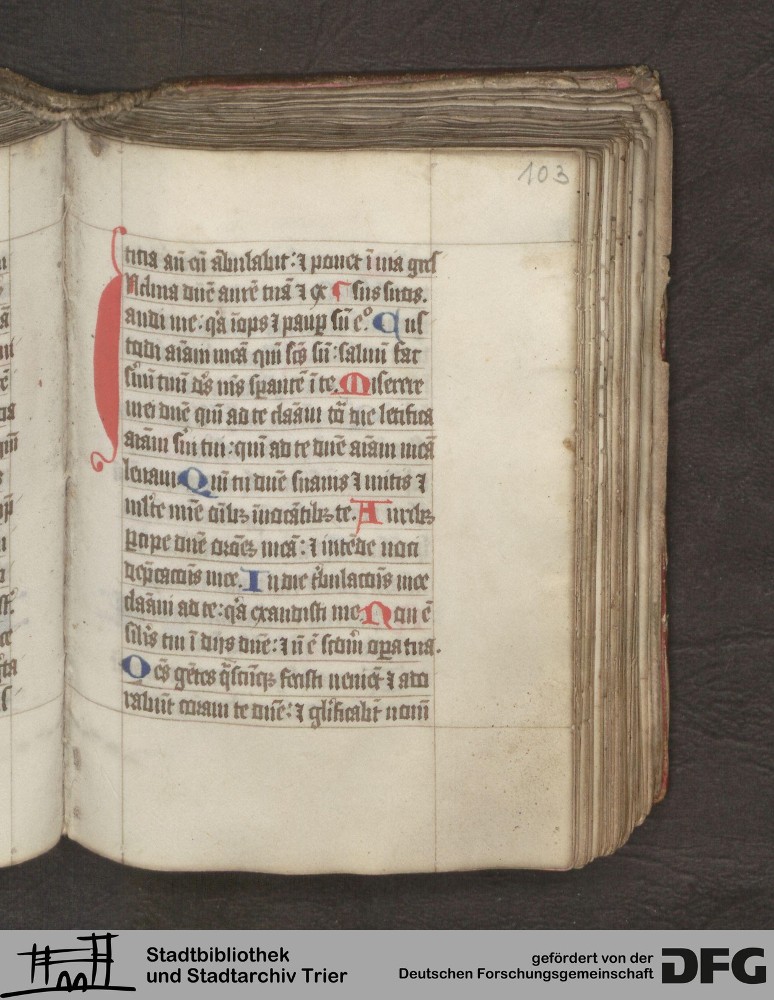 103
titia añ eū ābulabit: ⁊ ponet ī uia gres
Nclina dñē aurē tuā ⁊ ex sus suos.
audi me: qͣ īops ⁊ paup sū eᵒ. Cus
todi aīam meā qm̄ scs̄ sū: saluū fac
suū tuū ds̄ ms̄ sperantē ī te. Miserere
mei dñē qm̄ ad te clāaui tō die letifica
aīam sui tui: qm̄ ad te dñē aīam meā
leuaui Qm̄ tu dñē suauis ⁊ mitis ⁊
mlte mie oībꝫ inuocātibꝫ te. Auribꝫ
percipe dñē orōeꝫ meā: ⁊ intēde uoci
dep̄catiōis mee. In die tͥbulatōis mee
clāaui ad te: qͣ exaudisti me. Non ē
silis tui ī dijs dñē: ⁊ nō ē scdm̄ opa tua.
Oēs gētes qͣscūqꝫ fecisti ueniēt ⁊ ado
rabūt coram te dñē: ⁊ glificabūt nom̄
Stadtbibliothek
und Stadtarchiv Trier
gefördert von der
Deutschen Forschungsgemeinschaft
DFG